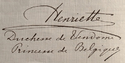 Henriette
Duchesse de Vendôme
Princesse de Belgique